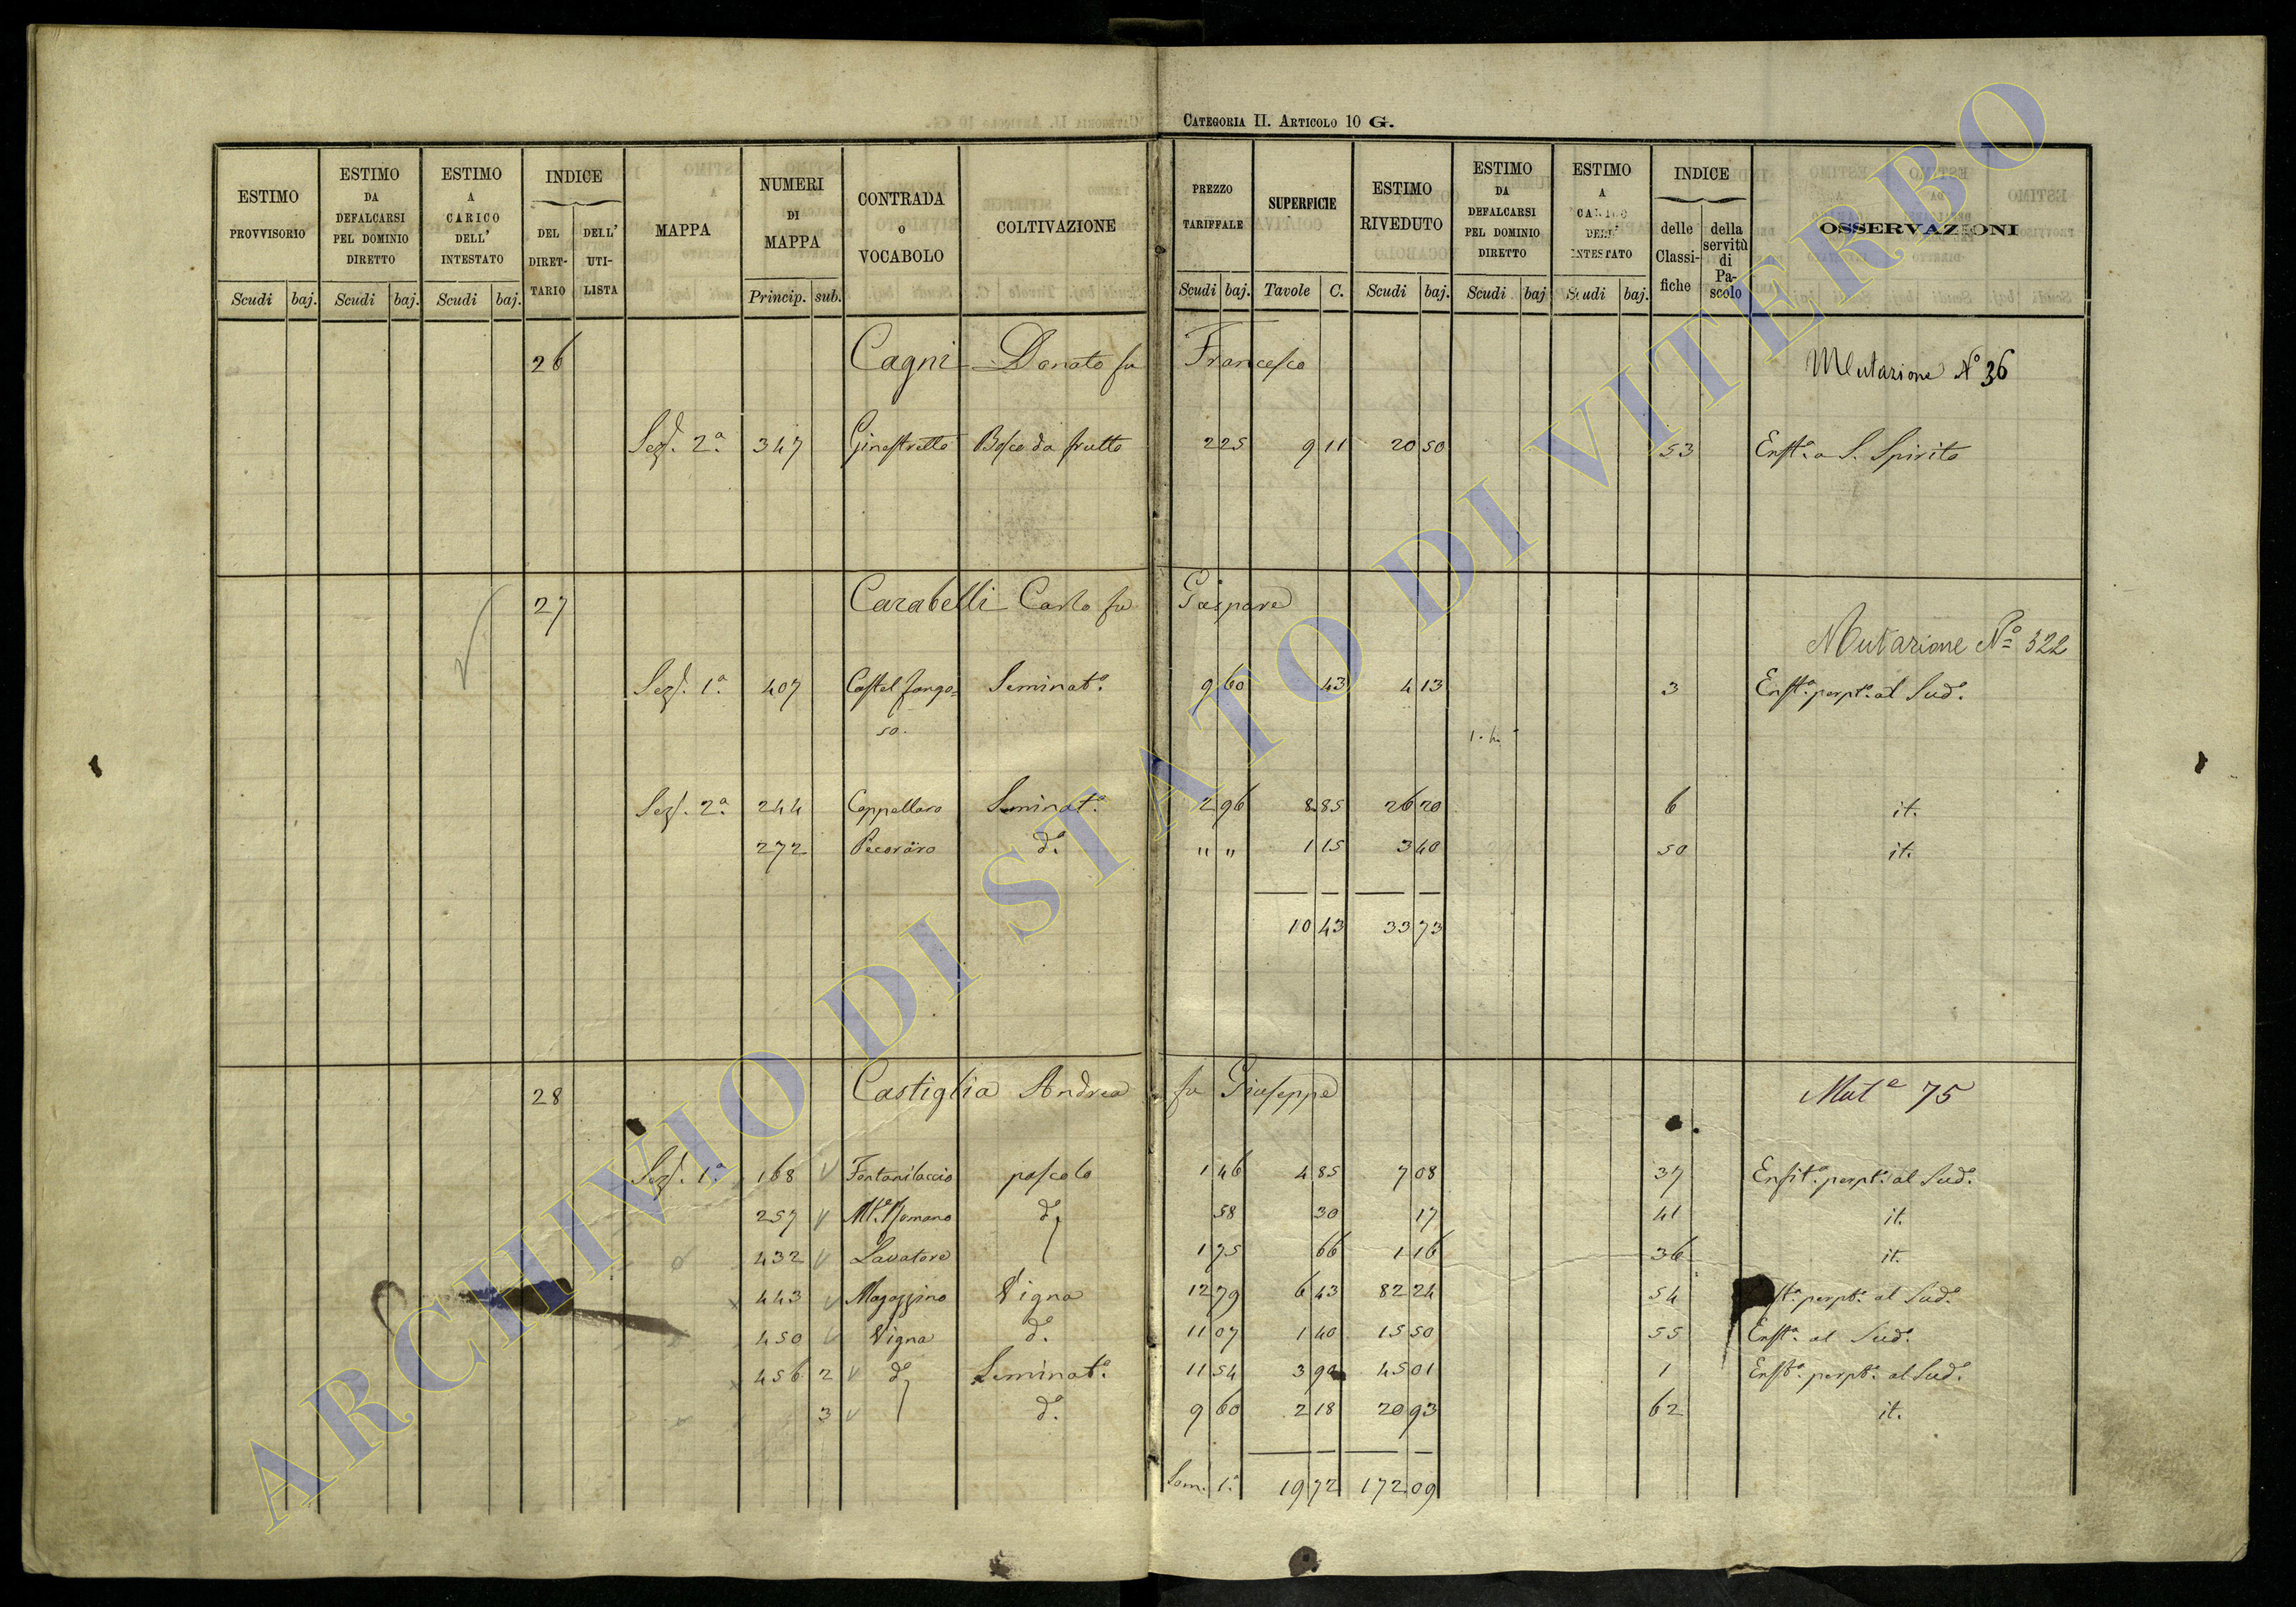 CATEGORIA II. ARTICOLO 10 G.
ESTIMO PROVVISORIO Scudi baj.
ESTIMO DA DEFALCARSI PEL DOMINIO DIRETTO Scudi baj.
ESTIMO A CARICO DELL' INTESTATO Scudi baj.
INDICE DEL DIRET-TARIO DELL' UTI-LISTA
MAPPA
NUMERI DI MAPPA Princip. sub.
CONTRADA o VOCABOLO
COLTIVAZIONE
PREZZO TARIFFALE Scudi baj.
SUPERFICIE Tavole C.
ESTIMO RIVEDUTO Scudi baj.
ESTIMO DA DEFALCARSI PEL DOMINIO DIRETTO Scudi baj
ESTIMO A CARICO DELL' INTESTATO Scudi baj.
INDICE delle Classi-fiche della servitù di Pa-scolo
OSSERVAZIONI
26 Cagni Donato fu Francesco Mutazione N° 36
Sez. 2a. 347 Ginestretto Bosco da frutto 2 25 9 11 20 50 53 Enfta. a S. Spirito
27 Carabelli Carlo fu Gaspare
Mutazione No 322
Sez. 1a. 407 Castel fango= Seminato. 9 60 43 4 13 3 Enfta. perpta. al Sudo.
so.
Sez. 2a. 244 Cappellaro Seminato. 2 96 8 85 26 20 6 it.
272 Pecoraro do. " " 1 15 3 40 50 it.
10 43 33 73
28 Castiglia Andrea fu Giuseppe Muta 75
Sez. 1a. 168 V Fontanilaccio pascolo 1 46 4 85 7 08 37 Enfita. perpta. al Sudo.
257 V Mte. Romano do 58 30 17 41 it.
432 V Lavatore 1 75 66 1 16 36 it.
443 V Magazzino Vigna 12 79 6 43 82 24 54 perpta. al Sudo.
450 V Vigna do. 11 07 1 40 15 50 55 Enfta. al Sudo.
456 2 V do Seminato. 11 54 3 90 45 01 1 Enfta. perpta. al Sudo.
3 V do. 9 60 2 18 20 93 62 it.
Som. 1a. 19 72 172 09
ARCHIVIO DI STATO DI VITERBO